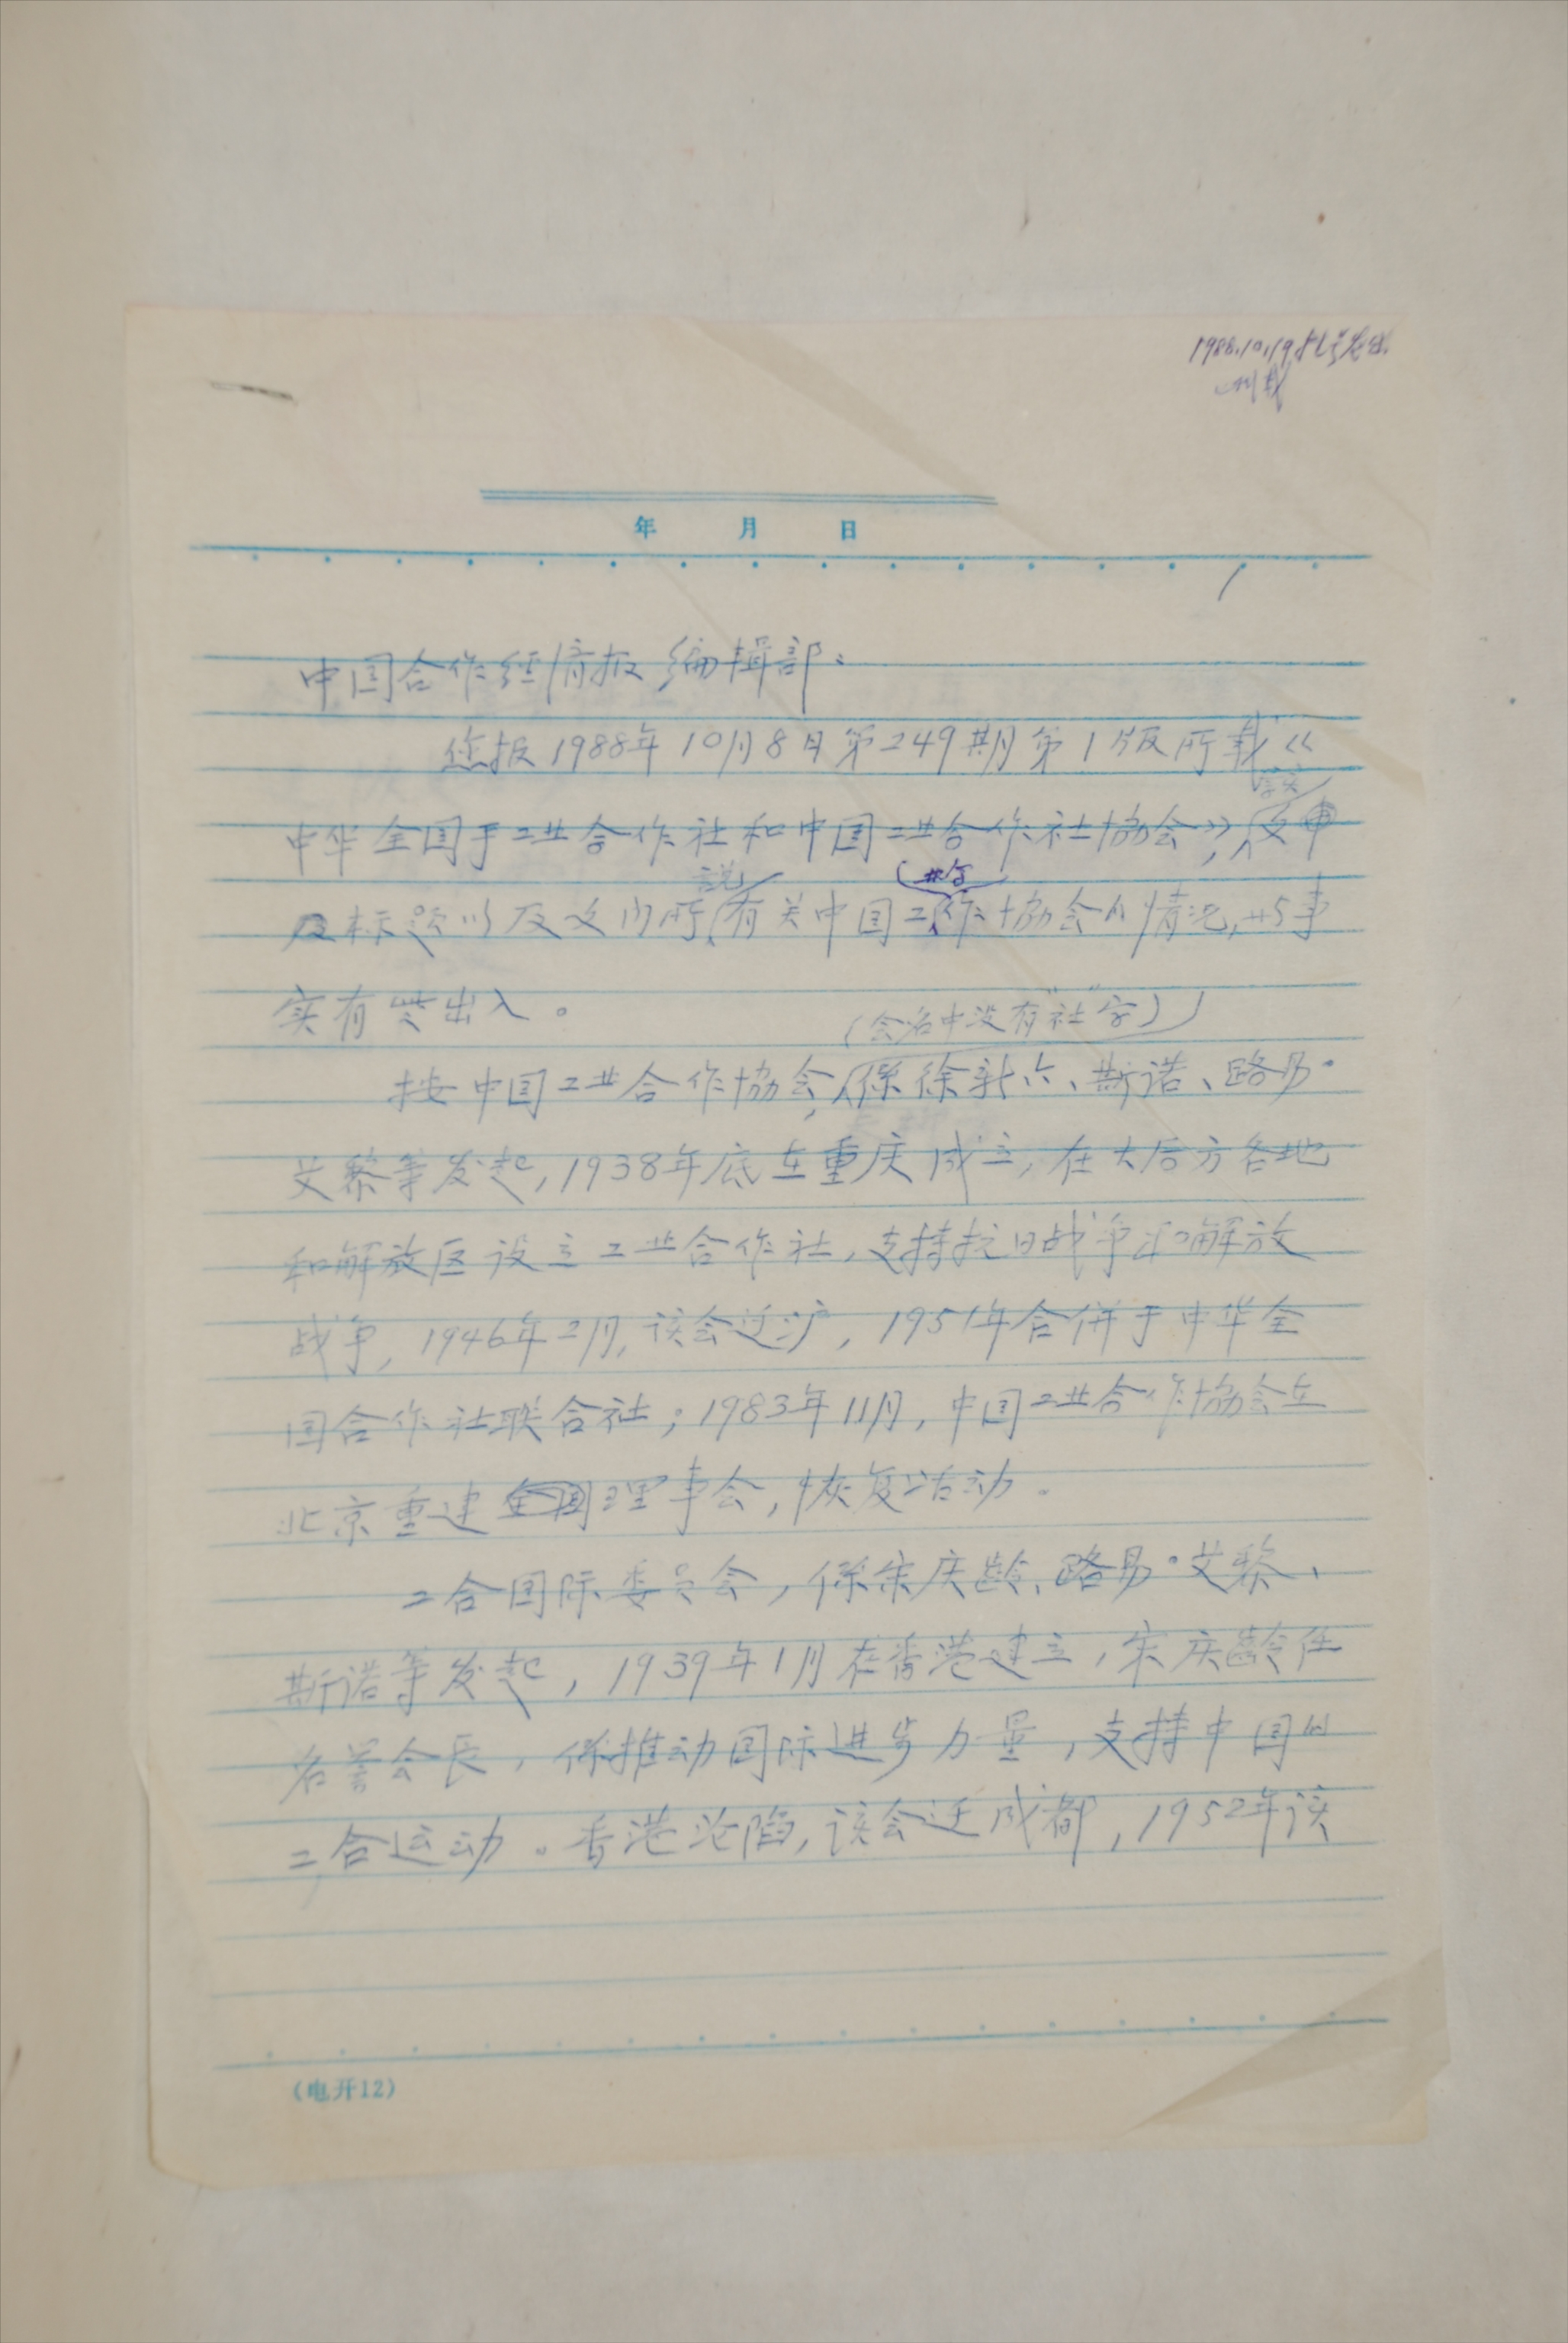 1988.10.19
刊载
年 月 日
1
中国合作经济报编辑部：
您报1988年10月8日第249期第1版所载《
中华全国手工业合作社和中国工业合作社协会》，
标题以及文内所说有关中国工业合作协会的情况，与事
实有些出入。
（会名中没有“社”字）
按中国工业合作协会，係徐新六、斯诺、路易·
艾黎等发起，1938年底在重庆成立，在大后方各地
和解放区设立工业合作社，支持抗日战争和解放
战争，1946年2月，该会迁沪，1951年合併于中华全
国合作社联合社；1983年11月，中国工业合作协会在
北京重建全国理事会，恢复活动。
工合国际委员会，係宋庆龄、路易·艾黎、
斯诺等发起，1939年1月在香港建立，宋庆龄任
名誉会长，係推动国际进步力量，支持中国的
工合运动。香港沦陷，该会迁成都，1952年该
（电开12）